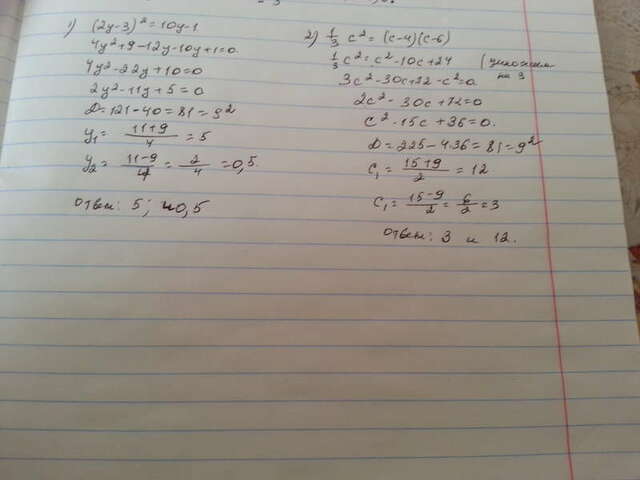 1) (2y-3)² = 10y-1
4y²+9-12y-10y+1=0
4y²-22y+10=0
2y²-11y+5=0
D=121-40=81=9²
y₁= (11+9)/4 = 5
y₂= (11-9)/4 = 2/4 = 0,5
Ответ: 5; и 0,5
2) 1/3 c² = (c-4)(c-6)
1/3 c² = c²-10c+24 (умножим на 3
3c²-30c+72-c²=0
2c²-30c+72=0
c²-15c+36=0.
D=225-4·36=81=9²
c₁= (15+9)/2 = 12
c₁= (15-9)/2 = 6/2 = 3
Ответ: 3 и 12.